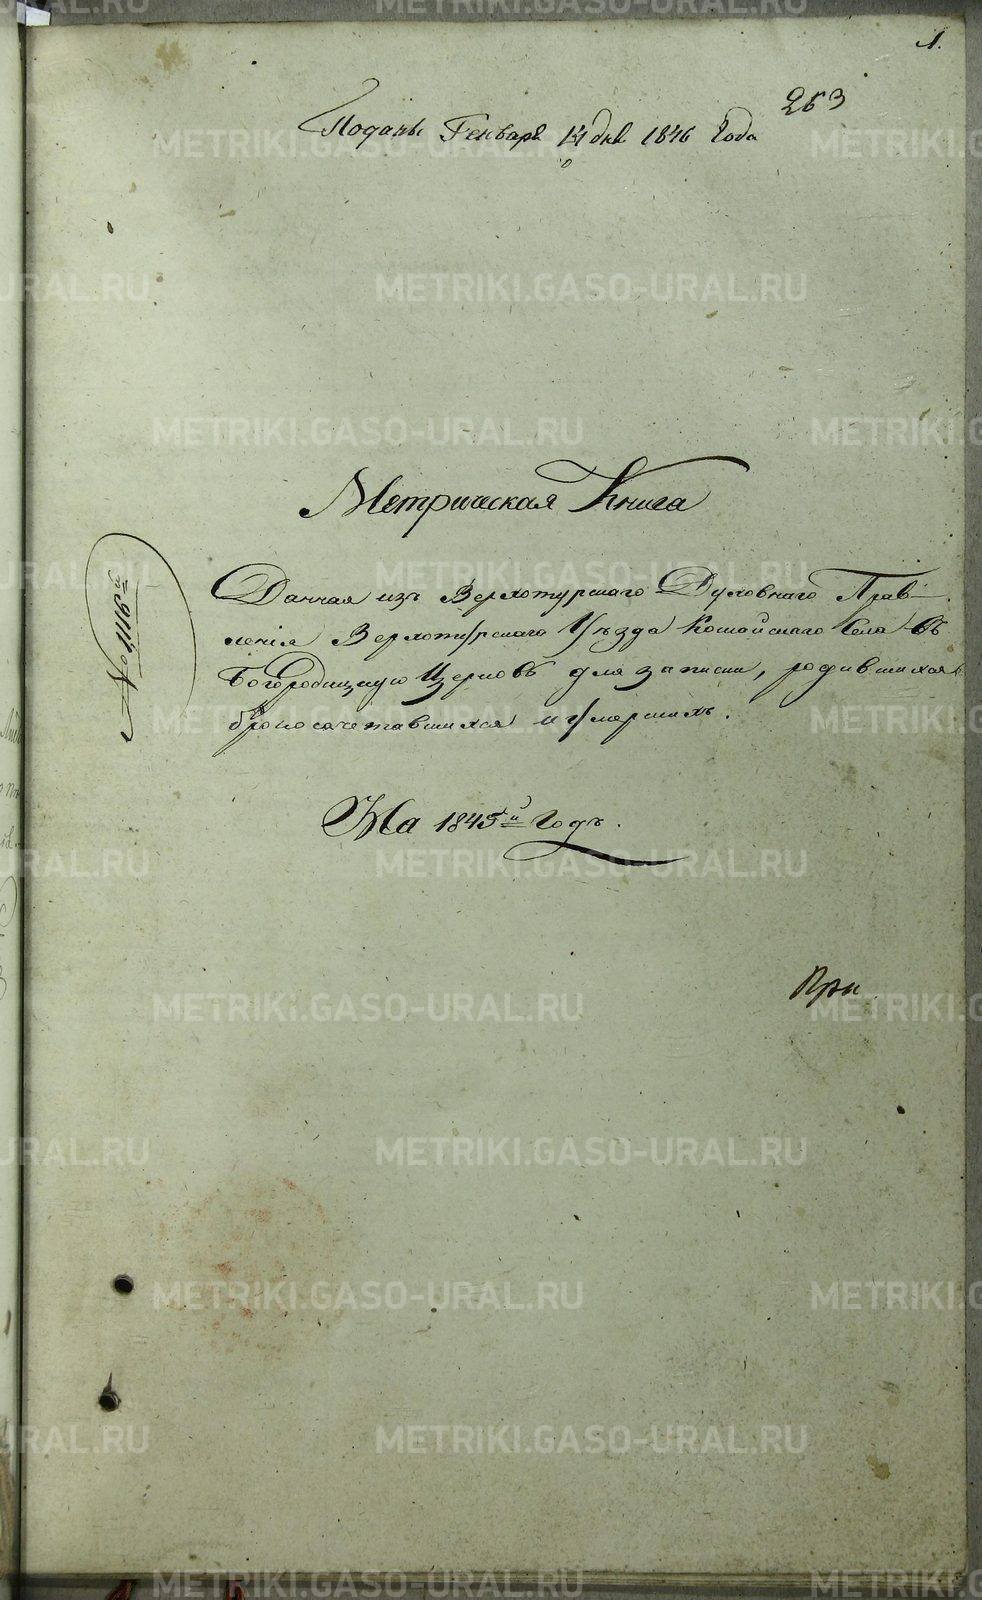 1.
263
Поданы Генваря 14 дня 1846 года
Метрическая Книга
Данная изъ Верхотурскаго Духовнаго Прав-
ленія Верхотурскаго Уѣзда Кошайскаго Села въ
Богородицкую Церковь для записки, родившихся
бракосочетавшихся и умершихъ.
№ 1116й
На 1845й Годъ.
При
METRIKI.GASO-URAL.RU